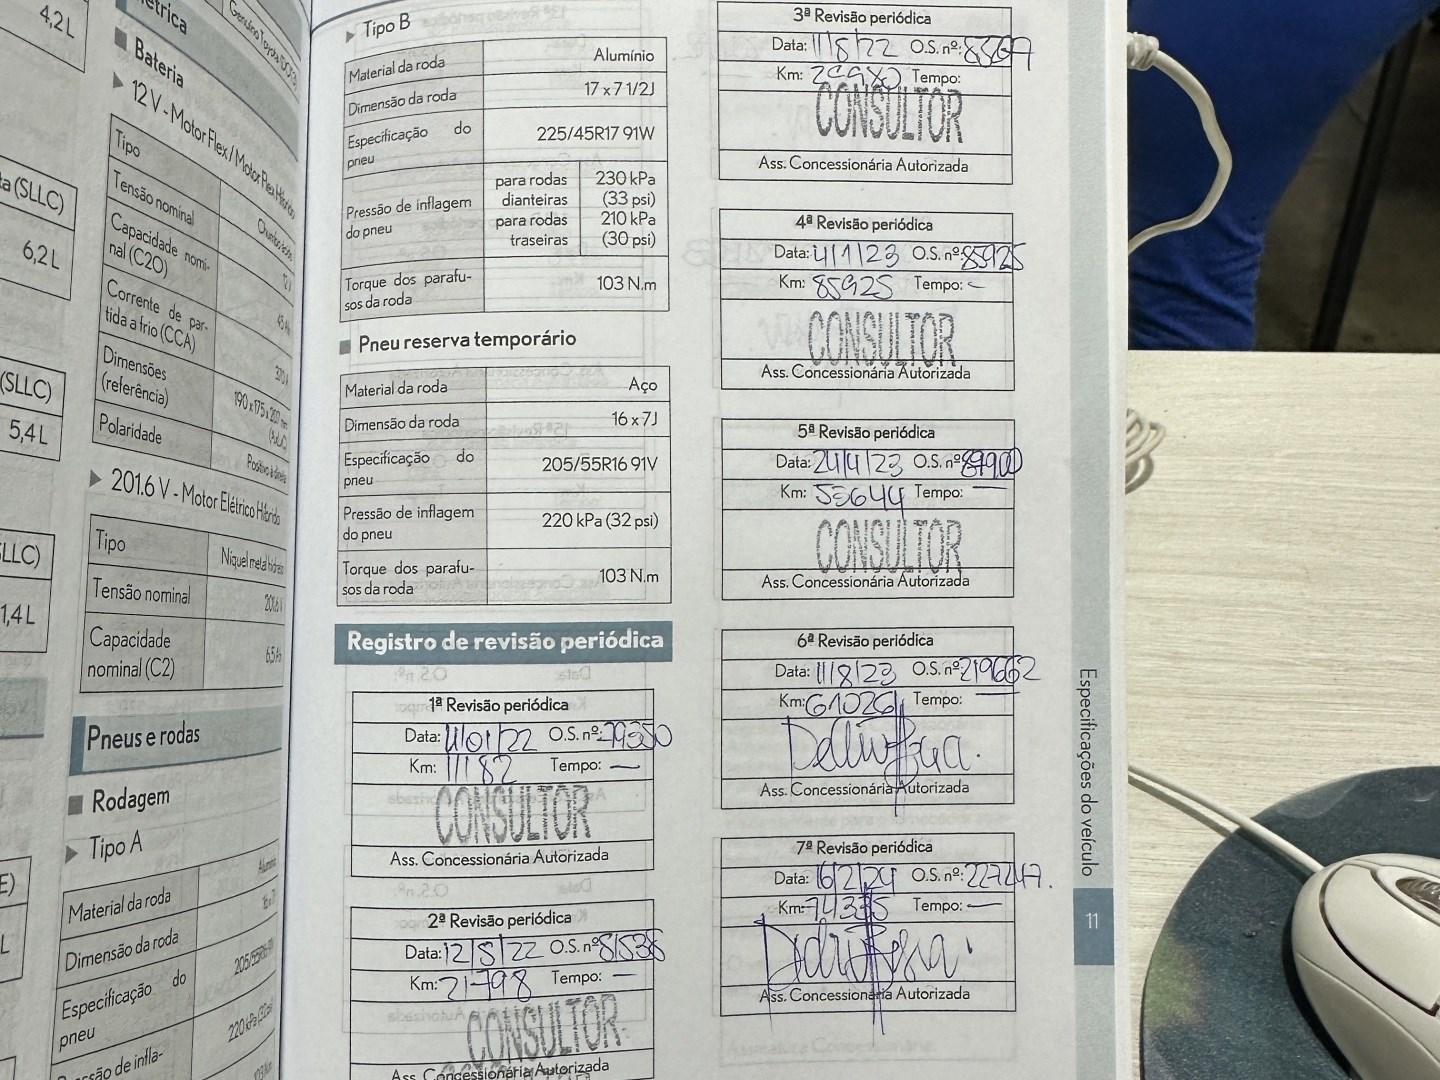 4,2 L
ta (SLLC)
6,2 L
(SLLC)
5,4 L
SLLC)
1,4 L
étrica
Genuíno Toyota
Bateria
12 V - Motor Flex / Motor Flex Híbrido
Tipo
Chumbo ácido
Tensão nominal
12 V
Capacidade nomi-
nal (C20)
45 Ah
Corrente de par-
tida a frio (CCA)
Dimensões
(referência)
Polaridade
201.6 V - Motor Elétrico Híbrido
Tipo
Níquel metal hidreto
Tensão nominal
201.6 V
Capacidade
nominal (C2)
6,5 Ah
Pneus e rodas
Rodagem
Tipo A
Material da roda
Alumínio
Dimensão da roda
Especificação do
pneu
205/55R16 91V
são de infla-
220 kPa (32 psi
Tipo B
Material da roda Alumínio
Dimensão da roda 17 x 7 1/2J
Especificação do
pneu 225/45R17 91W
Pressão de inflagem
do pneu
para rodas
dianteiras
230 kPa
(33 psi)
para rodas
traseiras
210 kPa
(30 psi)
Torque dos parafu-
sos da roda 103 N.m
Pneu reserva temporário
Material da roda Aço
Dimensão da roda 16 x 7J
Especificação do
pneu 205/55R16 91V
Pressão de inflagem
do pneu 220 kPa (32 psi)
Torque dos parafu-
sos da roda 103 N.m
Registro de revisão periódica
1ª Revisão periódica
Data: 11/01/22 O.S. nº: 79350
Km: 11182 Tempo: —
CONSULTOR
Ass. Concessionária Autorizada
2ª Revisão periódica
Data: 12/5/22 O.S. nº: 81538
Km: 21798 Tempo: —
CONSULTOR
Ass. Concessionária Autorizada
3ª Revisão periódica
Data: 11/8/22 O.S. nº:
Km: Tempo:
CONSULTOR
Ass. Concessionária Autorizada
4ª Revisão periódica
Data: 4/1/23 O.S. nº: 85925
Km: 85925 Tempo: -
CONSULTOR
Ass. Concessionária Autorizada
5ª Revisão periódica
Data: 24/4/23 O.S. nº:
Km: 53644 Tempo: —
CONSULTOR
Ass. Concessionária Autorizada
6ª Revisão periódica
Data: 11/8/23 O.S. nº: 219662
Km: 61026 Tempo: —
Ass. Concessionária Autorizada
7ª Revisão periódica
Data: 16/2/24 O.S. nº: 227247.
Km: 74335 Tempo: —
Ass. Concessionária Autorizada
Especificações do veículo
11